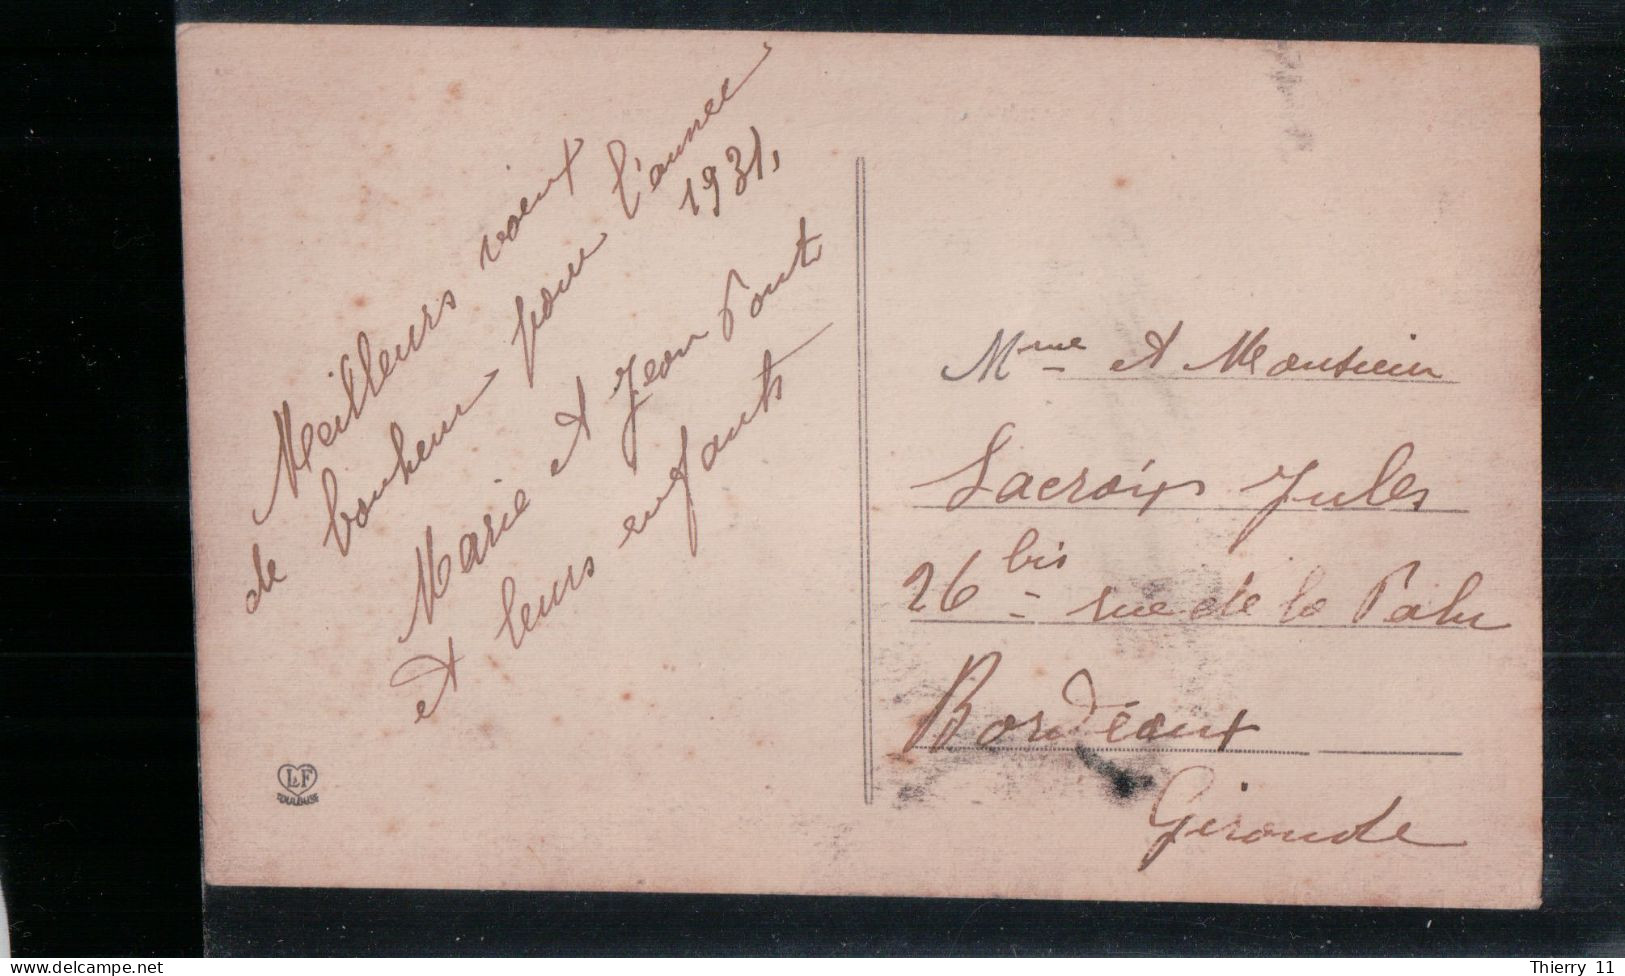 Meilleurs voeux
de bonheur pour l'année
1931,
Marie et Jean Pouts
et leurs enfants
LF
TOULOUSE
Mme et Monsieur
Lacroix Jules
26 bis rue de la Palu
Bordéaux
Gironde
Thierry 11